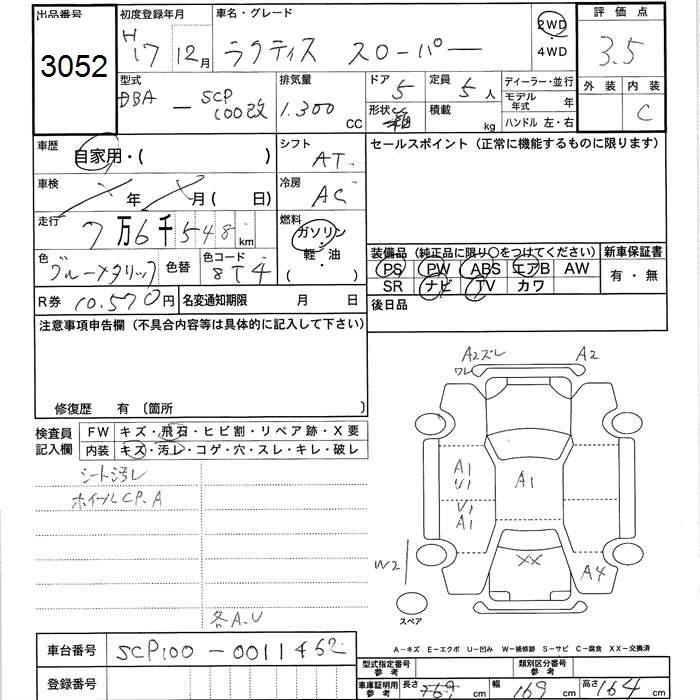 出品番号 初度登録年月 車名・グレード 2WD 評価点
3052 H17 12月 ラクティス スローパー ・4WD 3.5
型式 排気量 ドア 定員 ディーラー・並行 外装 内装
DBA - SCP100改 1.300 CC 5 5人 モデル年式 年 C
形状 積載 kg ハンドル 左・右
車歴 自家用・( ) シフト AT セールスポイント (正常に機能するものに限ります)
車検 年 月( 日) 冷房 AC
走行 7万6千548km 燃料 ガソリン・軽・油 ( )
色 ブルーメタリック 色替 色コード 8T4 装備品 (純正品に限り○をつけてください) 新車保証書
PS PW ABS エアB AW 有・無
R券 10.570円 名変通知期限 月 日 SR ナビ TV カワ
後日品
注意事項申告欄 (不具合内容等は具体的に記入して下さい)
修復歴 有 〔箇所 〕
A2ズレ A2
ワレ
検査員記入欄 FW キズ・飛石・ヒビ割・リペア跡・X要
内装 キズ・汚レ・コゲ・穴・スレ・キレ・破レ
シート汚レ
ホイールCP.A
A1
U1
U1
A1
A1
XX
W2
A4
スペア
各A.U
A-キズ E-エクボ U-凹み W-補修跡 S-サビ C-腐食 XX-交換済
車台番号 SCP100-0011462
登録番号
型式指定番号 参考 類別区分番号 参考
車庫証明用 参考 長さ 769cm 幅 169cm 高さ 164cm